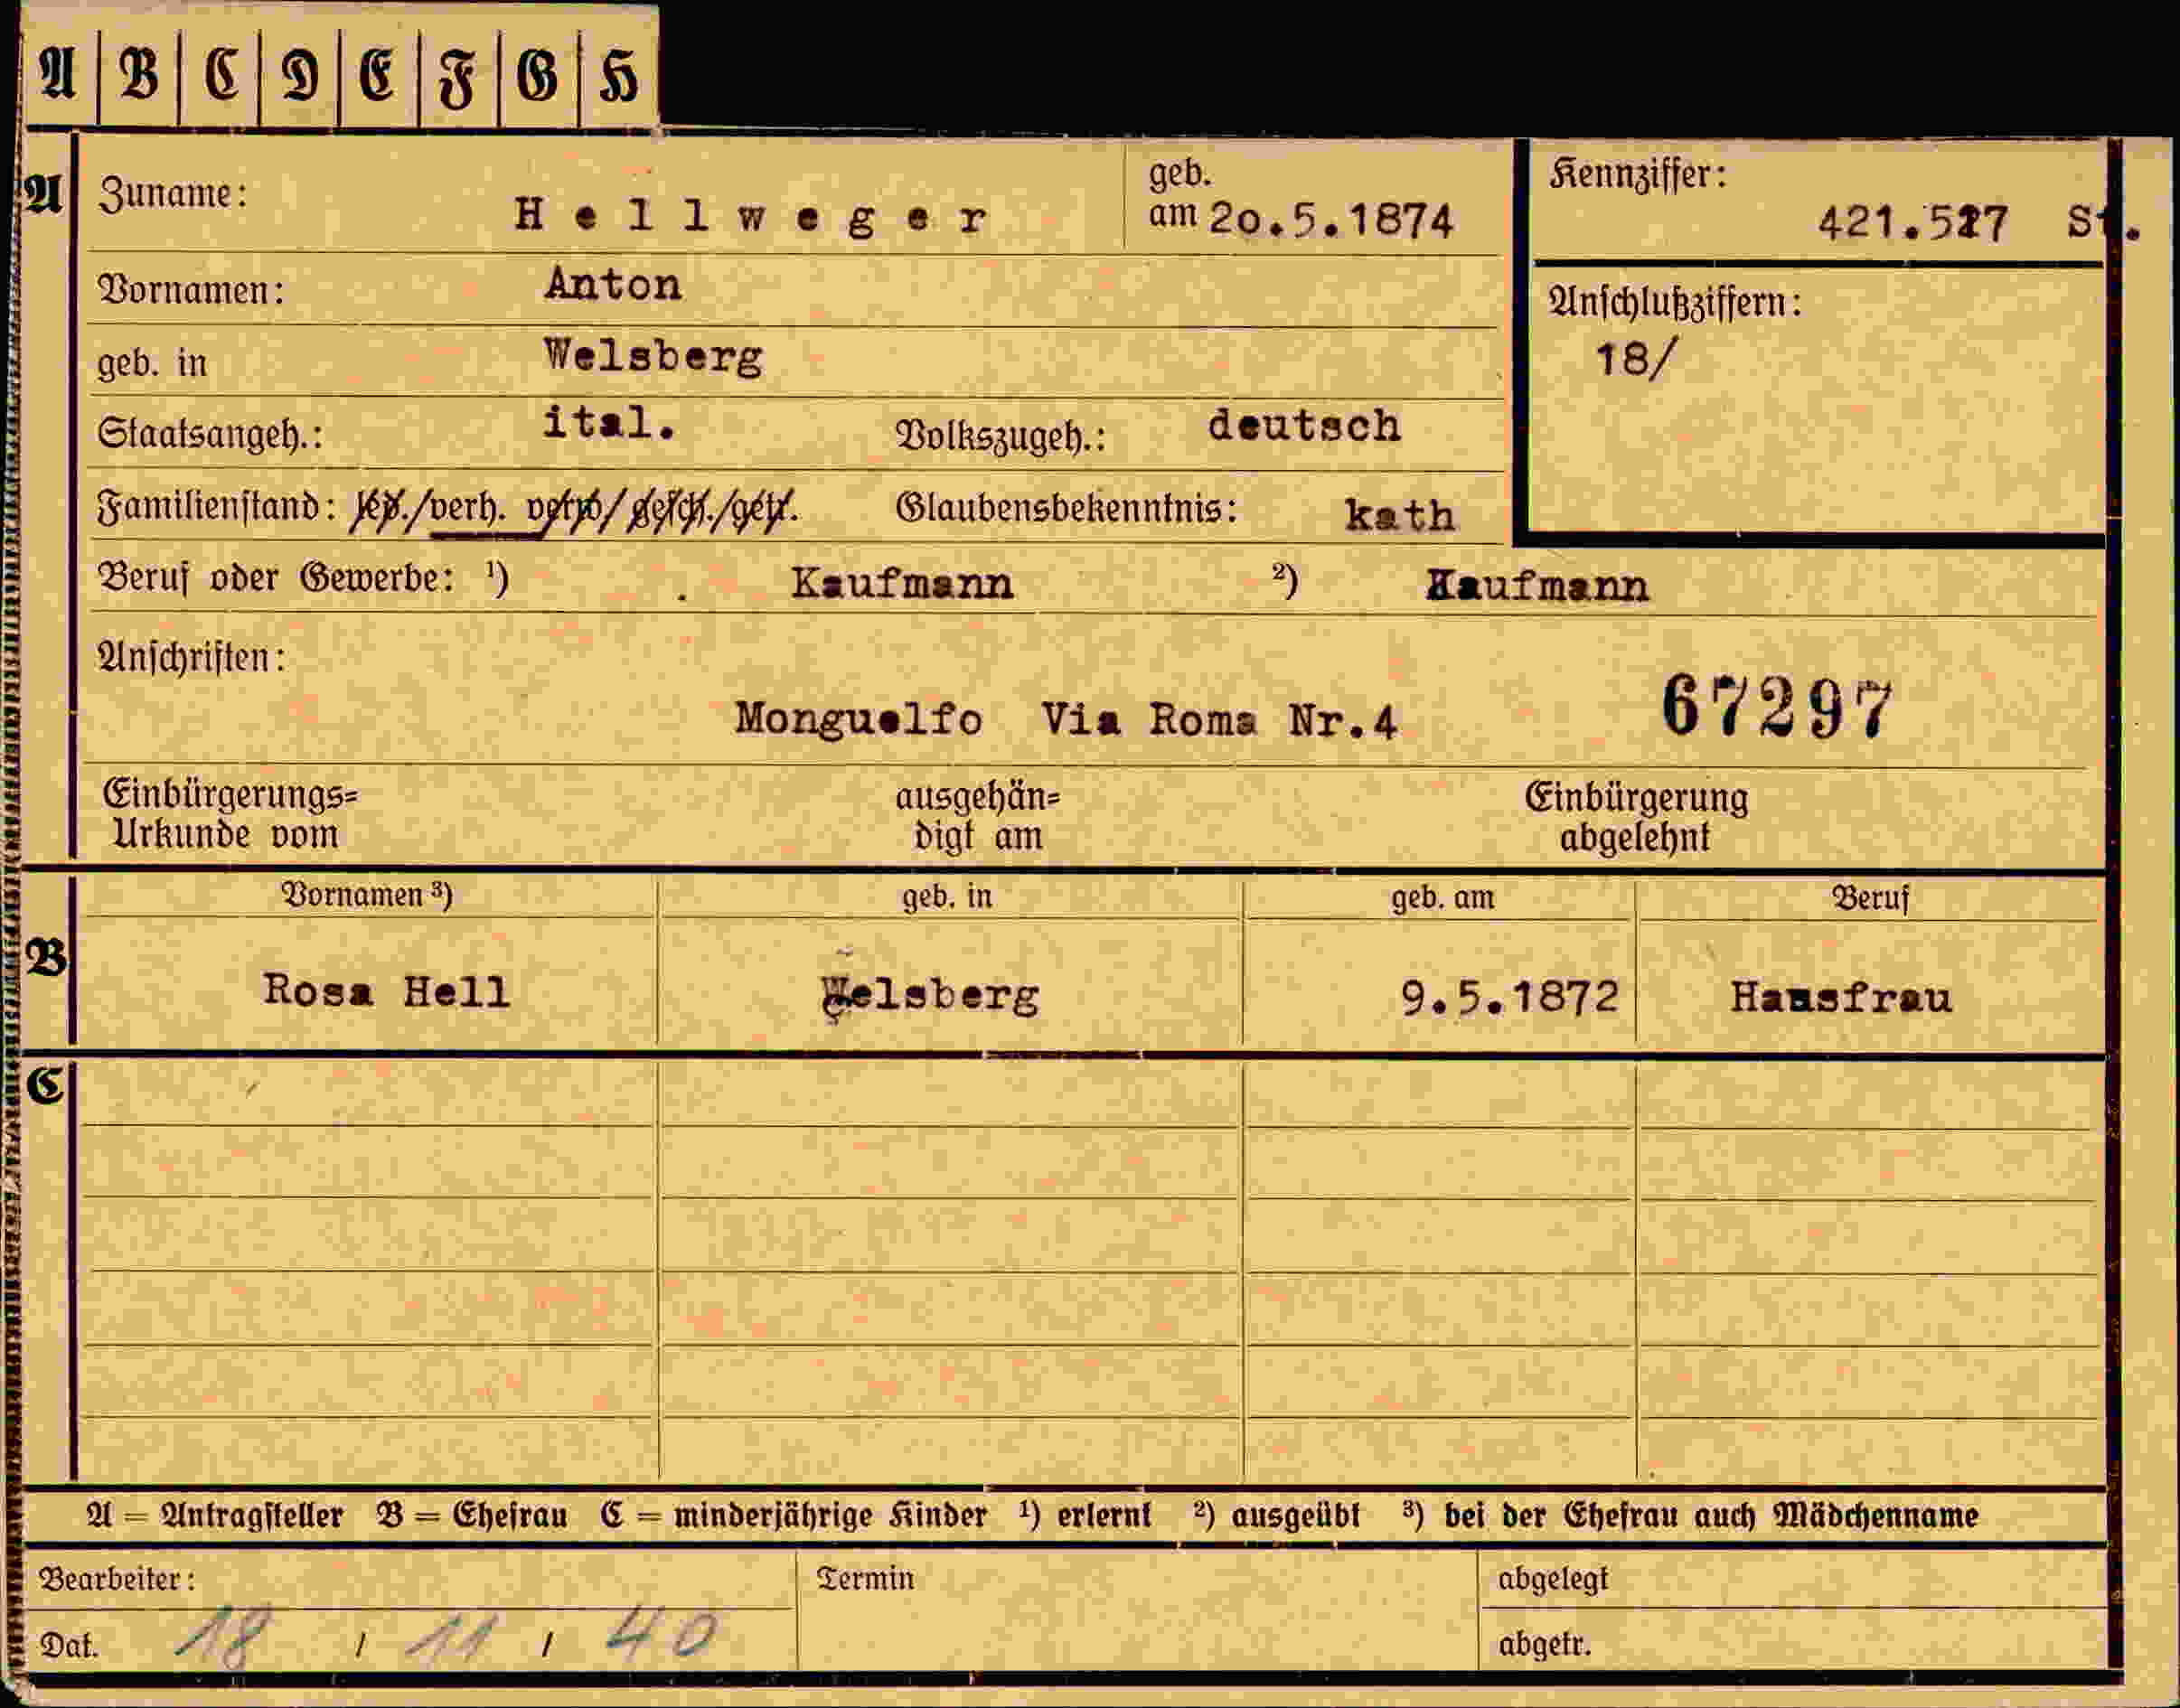 A B C D E F G H
A Zuname: Hellweger geb. am 20.5.1874 Kennziffer: 421.527 St.
Vornamen: Anton Anschlußziffern:
geb. in Welsberg 18/
Staatsangeh.: ital. Volkszugeh.: deutsch
Familienstand: led./verh. verw/gesch./getr. Glaubensbekenntnis: kath
Beruf oder Gewerbe: ¹) . Kaufmann ²) Kaufmann
Anschriften:
Monguelfo Via Roma Nr.4 67297
Einbürgerungs= ausgehän= Einbürgerung
Urkunde vom digt am abgelehnt
Vornamen ³) geb. in geb. am Beruf
B Rosa Hell Welsberg 9.5.1872 Hausfrau
C
A = Antragsteller B = Ehefrau C = minderjährige Kinder ¹) erlernt ²) ausgeübt ³) bei der Ehefrau auch Mädchenname
Bearbeiter: Termin abgelegt
Dat. 18 / 11 / 40 abgetr.